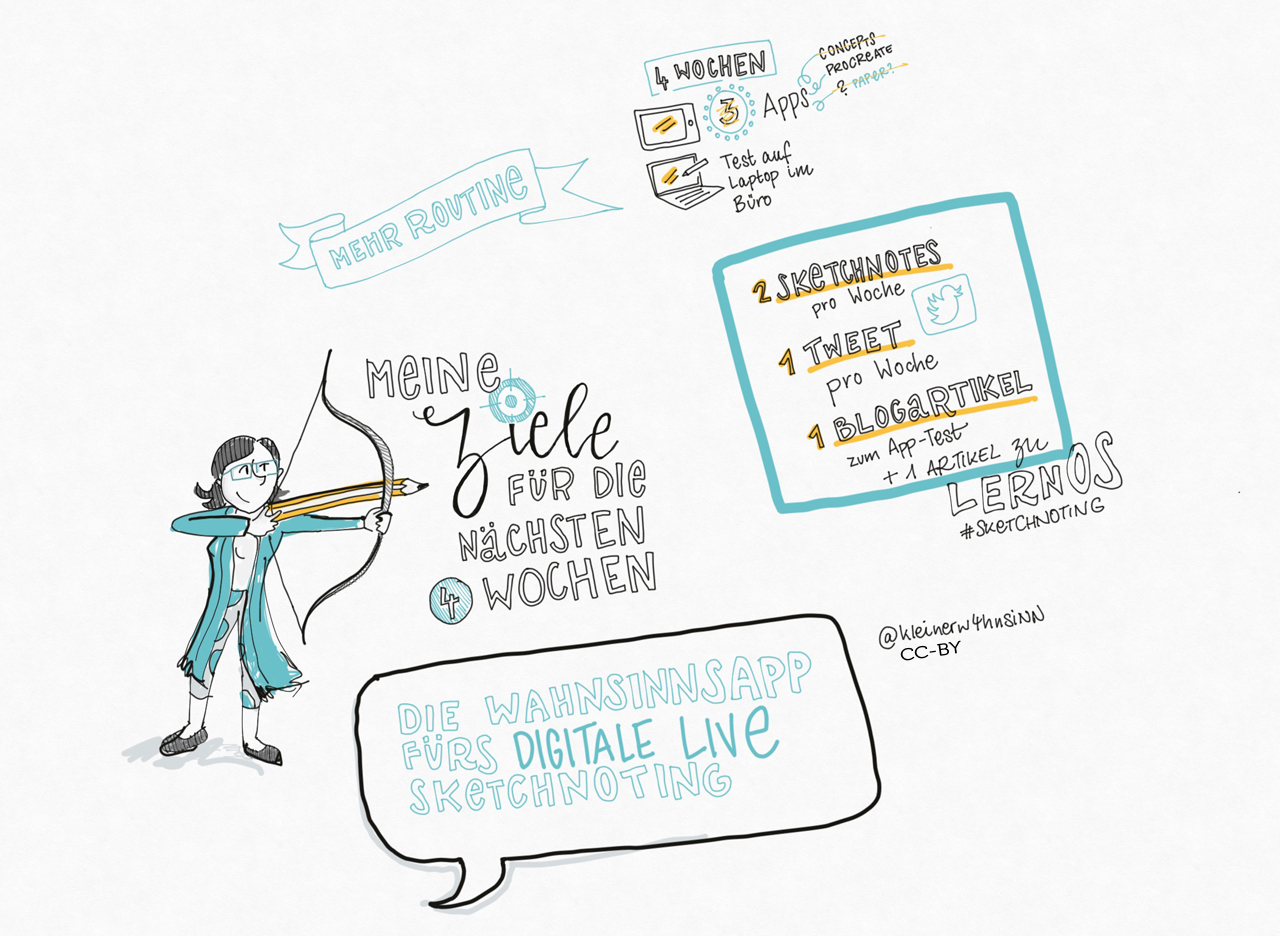 4 WOCHEN
3 Apps
CONCEPTS
PROCREATE
? PAPER?
Test auf
Laptop im
Büro
MEHR ROUTINE
2 SKETCHNOTES
pro Woche
1 TWEET
pro Woche
1 BLOGARTIKEL
zum App-Test
+ 1 ARTIKEL zu
LERNOS
#SKETCHNOTING
MEINE
Ziele
FÜR DIE
NÄCHSTEN
4 WOCHEN
@kleinerw4hnsinn
CC-BY
DIE WAHNSINNSAPP
FÜRS DIGITALE LIVE
SKETCHNOTING